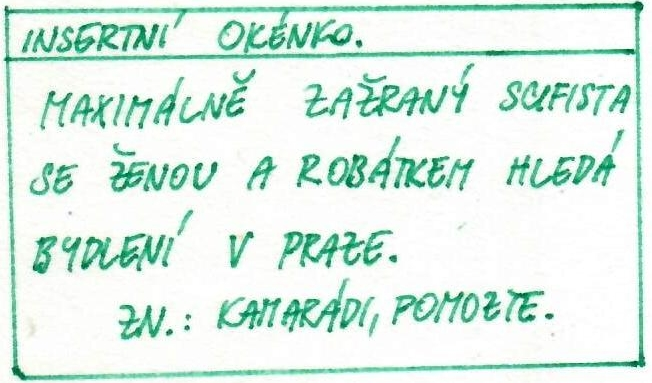 INSERTNÍ OKÉNKO.
MAXIMÁLNĚ ZAŽRANÝ SCIFISTA
SE ŽENOU A ROBÁTKEM HLEDÁ
BYDLENÍ V PRAZE.
ZN.: KAMARÁDI, POMOZTE.